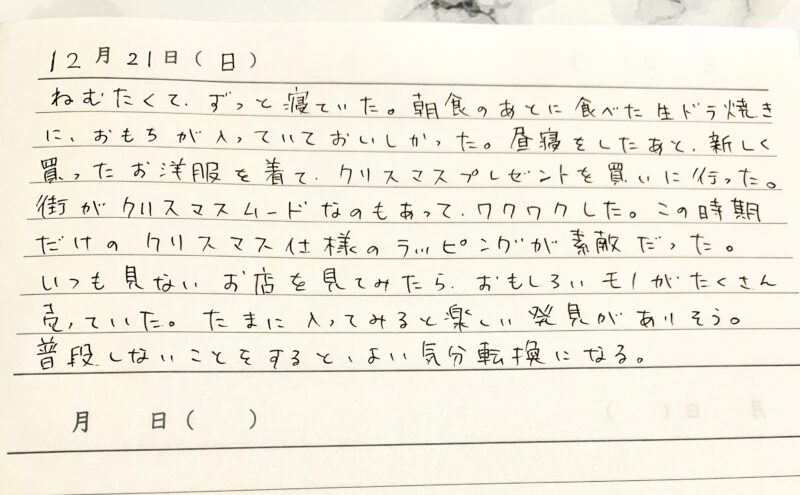 12月21日(日)
ねむたくて、ずっと寝ていた。朝食のあとに食べた生ドラ焼き
に、おもちが入っていておいしかった。昼寝をしたあと、新しく
買ったお洋服を着て、クリスマスプレゼントを買いに行った。
街がクリスマスムードなのもあって、ワクワクした。この時期
だけのクリスマス仕様のラッピングが素敵だった。
いつも見ないお店を見てみたら、おもしろいモノがたくさん
売っていた。たまに入ってみると楽しい発見がありそう。
普段しないことをすると、よい気分転換になる。
月 日( )